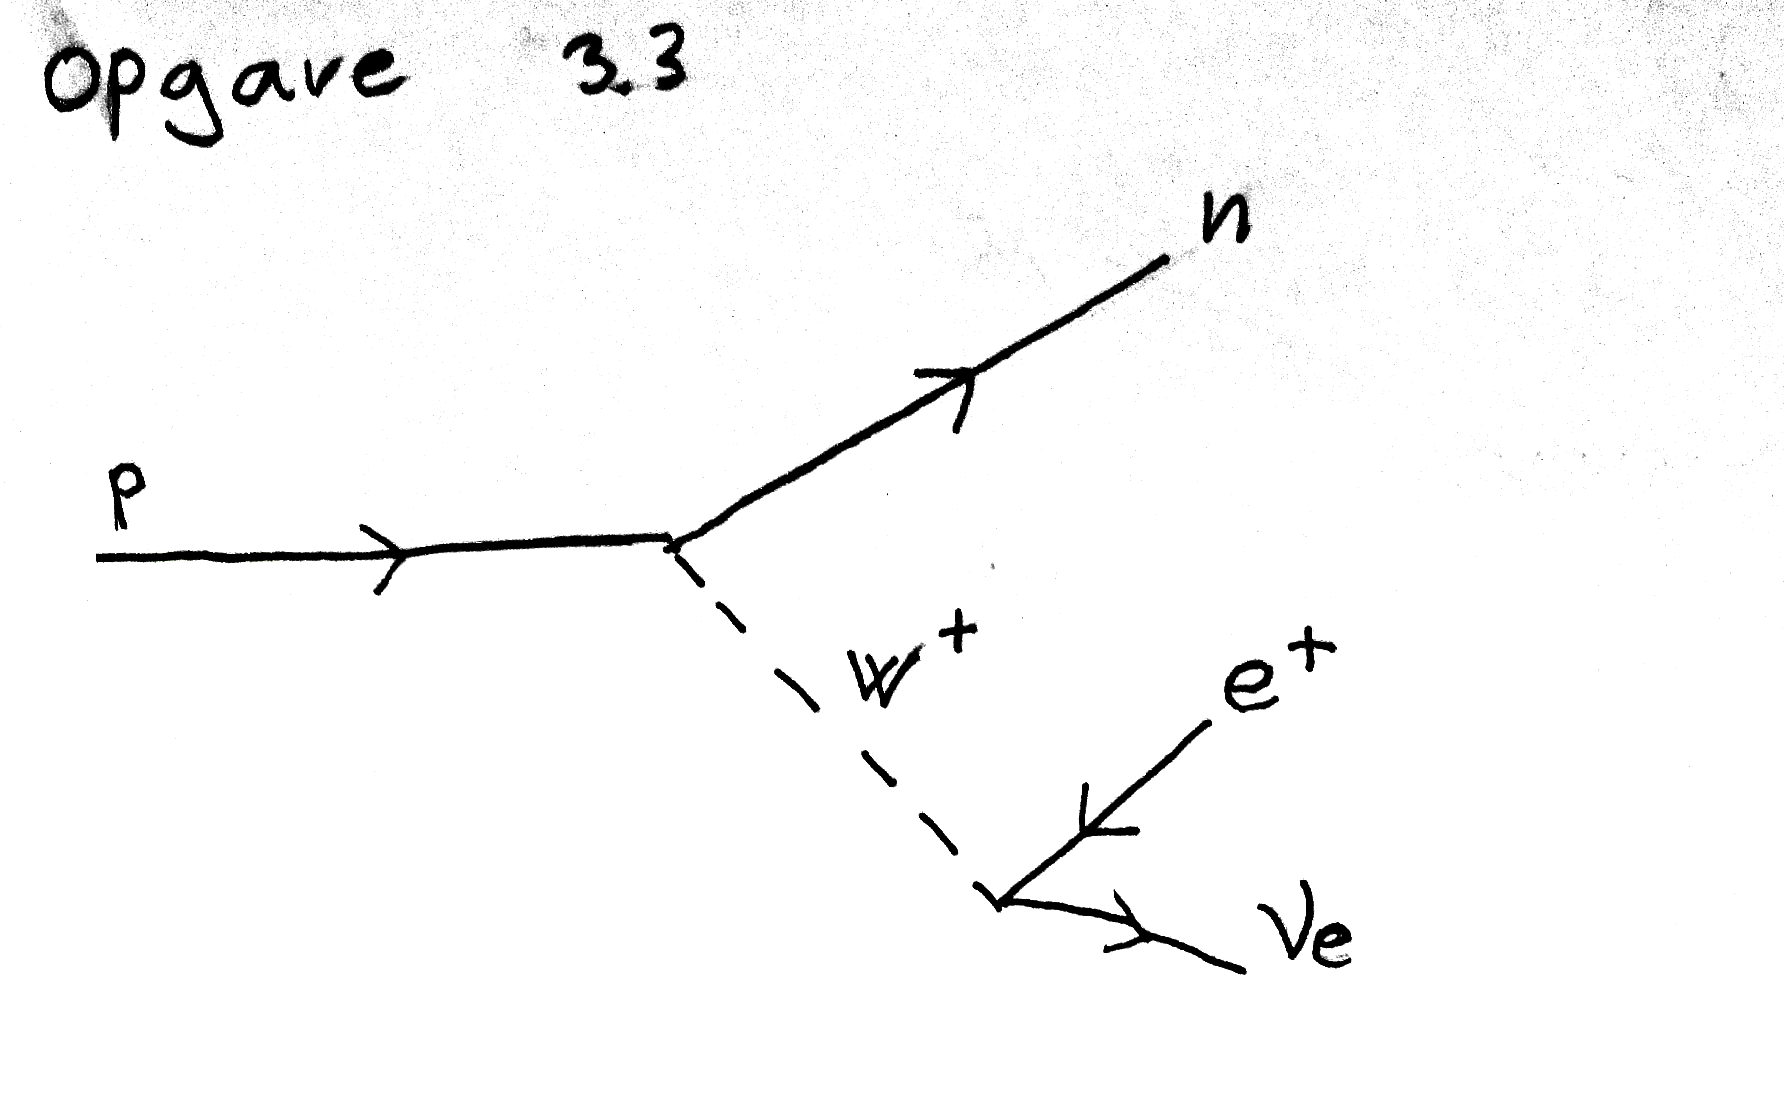 Opgave 3.3
n
p
W+
e+
νe